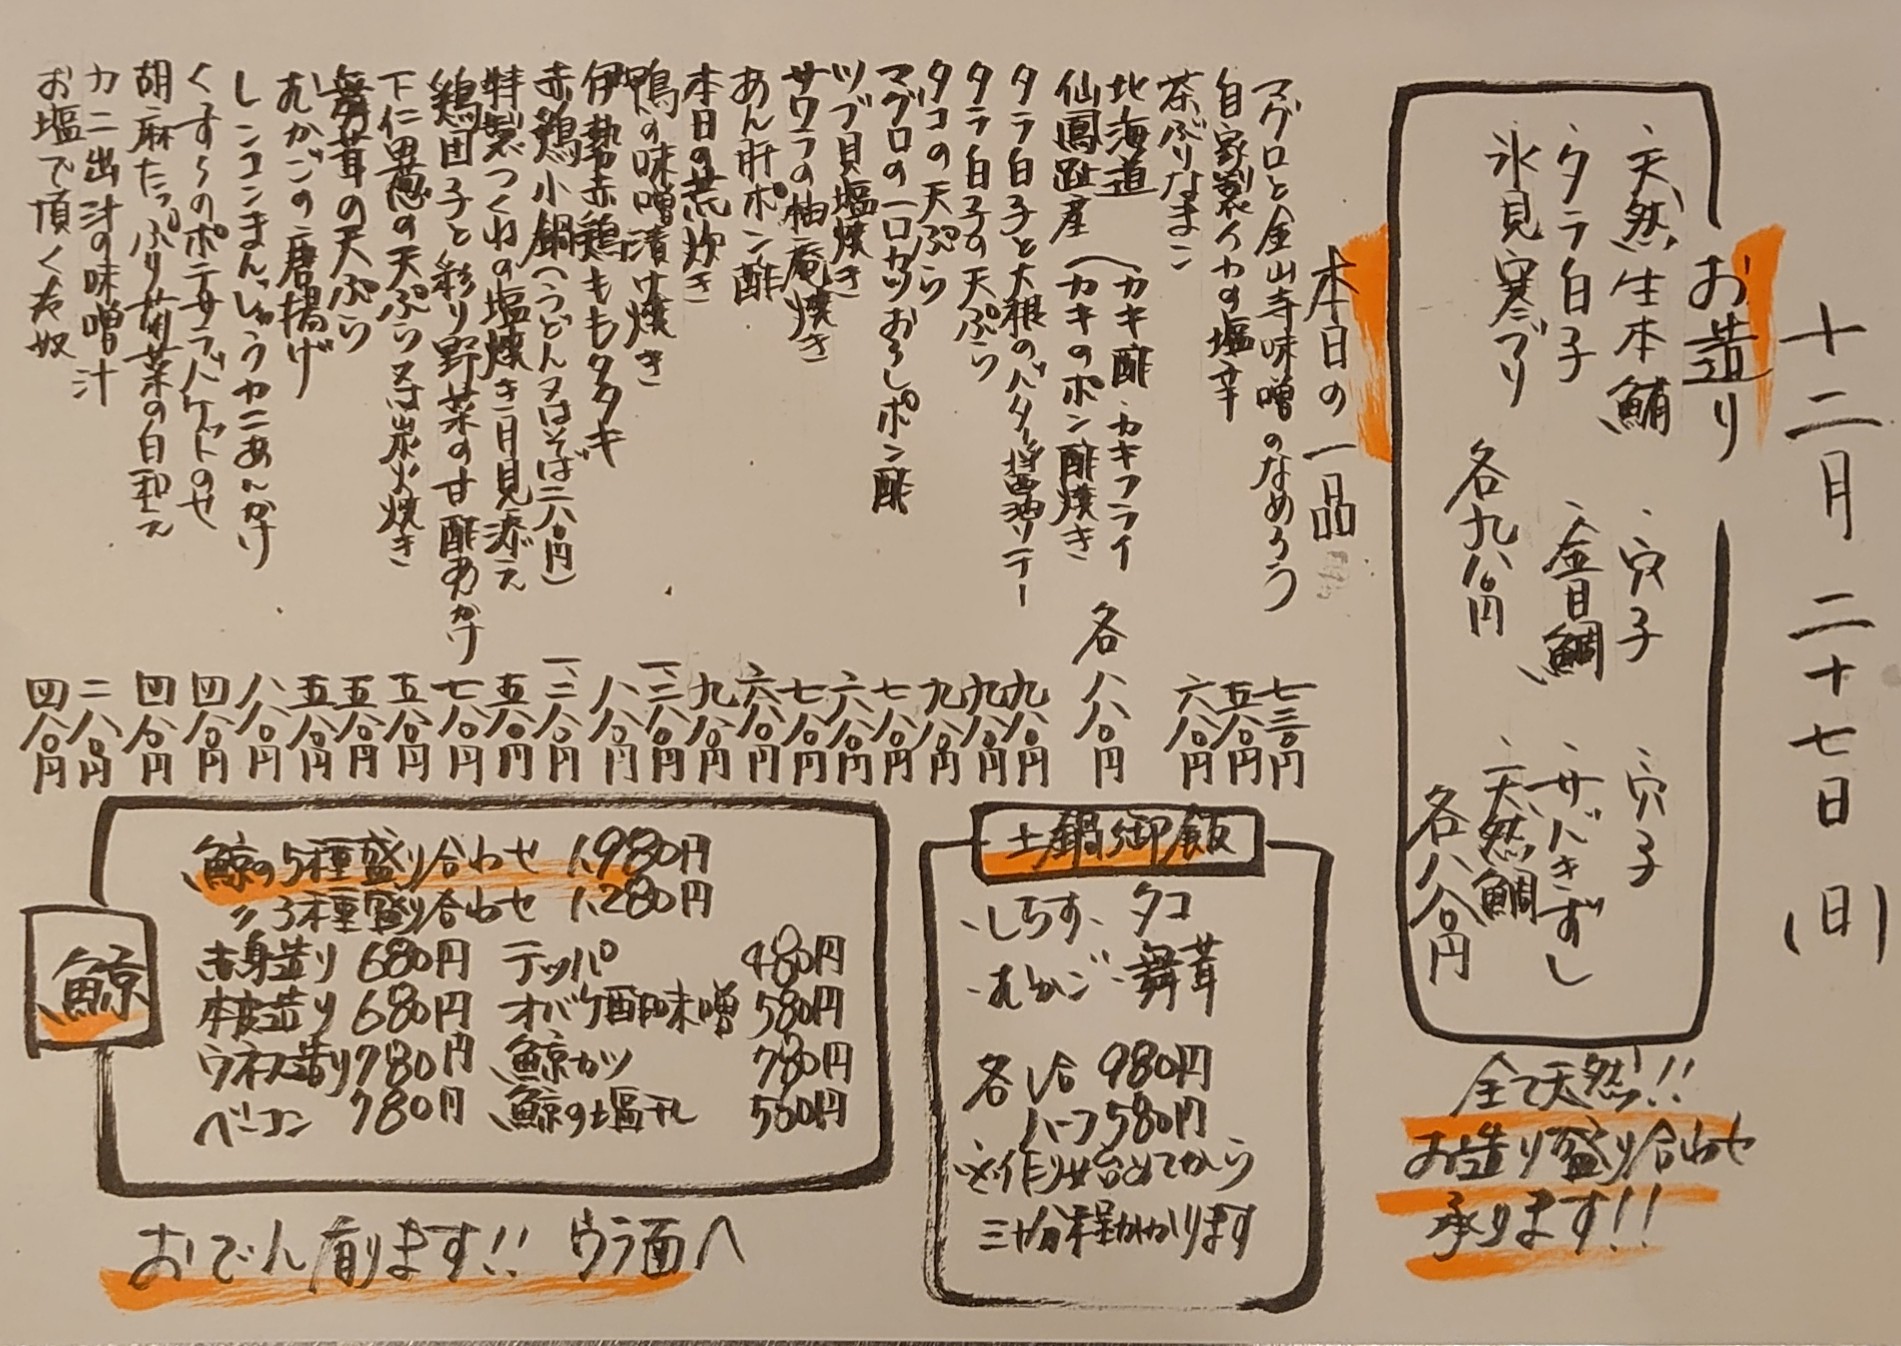 十二月二十七日(日)
お造り
・天然生本鮪 ・穴子 ・穴子
・タラ白子 ・金目鯛 ・サバきずし
・氷見寒ブリ ・天然鯛
各九八〇円 各八八〇円
全て天然!!
お造り盛り合わせ
承ります!!
本日の一品
マグロと金山寺味噌のなめろう 七三〇円
自家製イカの塩辛 五八〇円
茶ぶりなまこ 六八〇円
北海道 (カキ酢・カキフライ
仙鳳趾産 (カキのポン酢焼き 各八八〇円
タラ白子と大根のバター醤油ソテー 九八〇円
タラ白子の天ぷら 九八〇円
タコの天ぷら 九八〇円
マグロの一口カツおろしポン酢 七八〇円
ツブ貝塩焼き 六八〇円
サワラの柚庵焼き 七八〇円
あん肝ポン酢 六八〇円
本日の荒炊き 九八〇円
鴨の味噌漬け焼き 一、二八〇円
伊勢赤鶏ももタタキ 八八〇円
赤鶏小鍋(うどん又はそば二八〇円) 一、二八〇円
特製つくねの塩焼き月見添え 五八〇円
鶏団子と彩り野菜の甘酢あんかけ 七八〇円
下仁田葱の天ぷら又は炭火焼き 五八〇円
舞茸の天ぷら 五八〇円
むかごの唐揚げ 五八〇円
レンコンまんじゅうカニあんかけ 八八〇円
くすくすのポテサラバケットのせ 四八〇円
胡麻たっぷり菊菜の白和え 四八〇円
カニ出汁の味噌汁 二八〇円
お塩で頂く冷奴 四八〇円
土鍋御飯
・しらす ・タコ
・むかご ・舞茸
各1合 980円
ハーフ580円
※作り始めてから
三十分程かかります
鯨
鯨の5種盛り合わせ 1,980円
〃 3種盛り合わせ 1,280円
赤身造り 680円 テッパ 480円
本皮造り 680円 オバケ酢味噌 580円
ウネス造り780円 鯨カツ 780円
ベーコン 780円 鯨の塩干し 550円
おでん有ります!! ウラ面へ